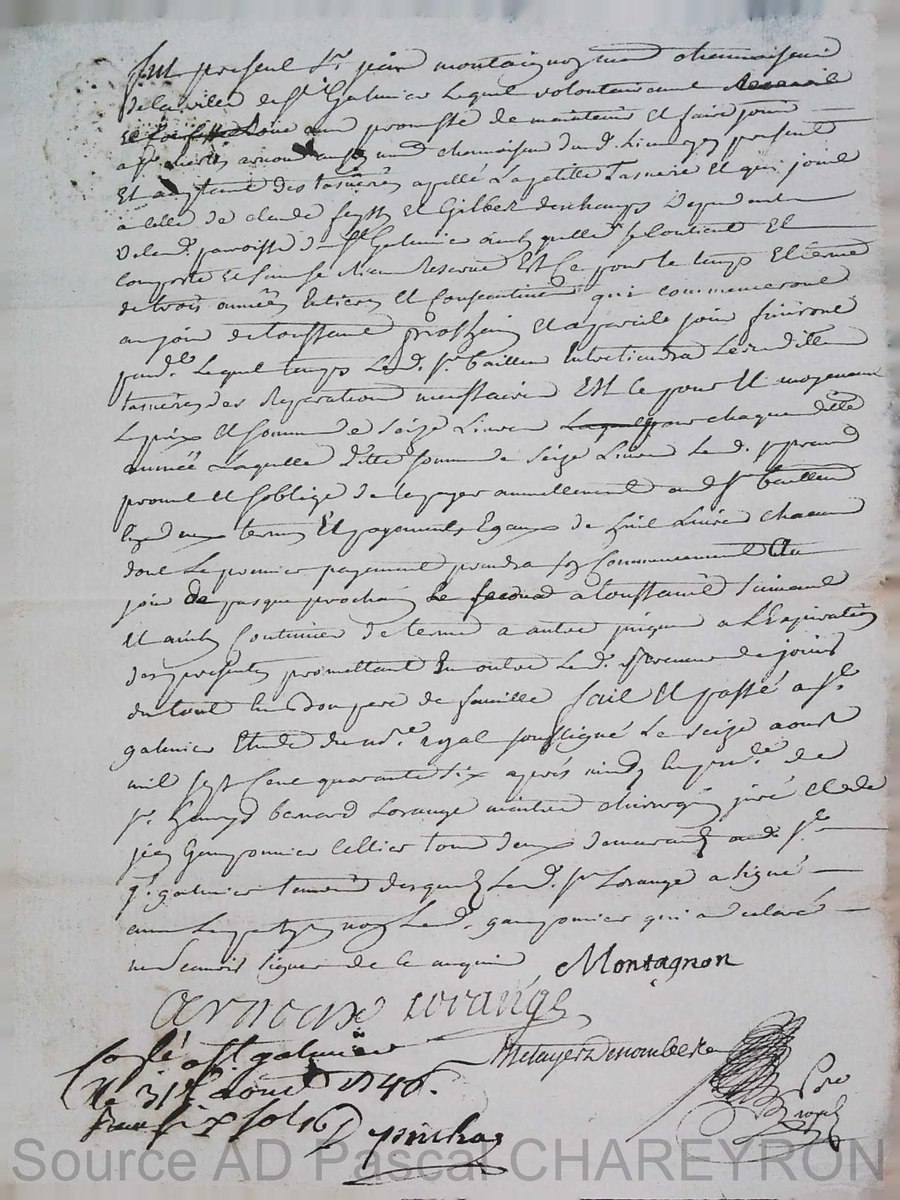 fut present Sr jean montaignon md chamoiseur
de la ville de St Galmier Lequel volontairement
avec promesse de maintenir et faire jouir
a Sr arnoux aussy md chamoiseur dud. Lieu present
Et acceptant des tasneries apellé La petitte Tasnerie Et qui joint
à celle de claude feysse Et Gilbert deschamps Dependante
De lad. parroisse de St Galmier ainsy quelle se Contient Et
comporte Et sans se Rien Reserver Est Ce pour le temps Et terme
de trois années Entieres Et Consecutives qui commenceront
au jour de toussaint prochain Et a pareils jour finiront
pendt. Lequel temps Led. Sr bailleur Entretiendra Lesdittes
tasneries des Reparations necessaires Est ce pour Et moyenant
Le prix Et somme de seize Livres pour chaque ditte
année Laquelle ditte somme de seize Livres Led. Sr preneur
promet Et soblige de la payer annuellement aud. Sr bailleur
En deux termes Et payements Egaux de huit Livres chacun
dont Le premier payement prendra son Commencement Au
jour de pasque prochain Le second a toussaint suivant
Et ainsy Continuer de terme a autre jusques a LExpiration
des presentes promettant En outre Led. Sr preneur de jouir
du tout En bon pere de famille fait Et passé a St
galmier Etude du nore royal soussigné Le seize aoust
mil sept Cent quarante six après midy En prece de
Sr bernard Lorange maitre chirurgien juré Et de
jean Gamponnier Cellier tous deux demeurants aud. St
galmier temoins desquels Led. Sr Lorange a signé
avec Les partyes non Led. gamponier qui a declaré
ne sauoir signer de ce enquis Montagnon
arnoux Lorange
Conlé a St galmier
Le 31e aout 1746.
six sols